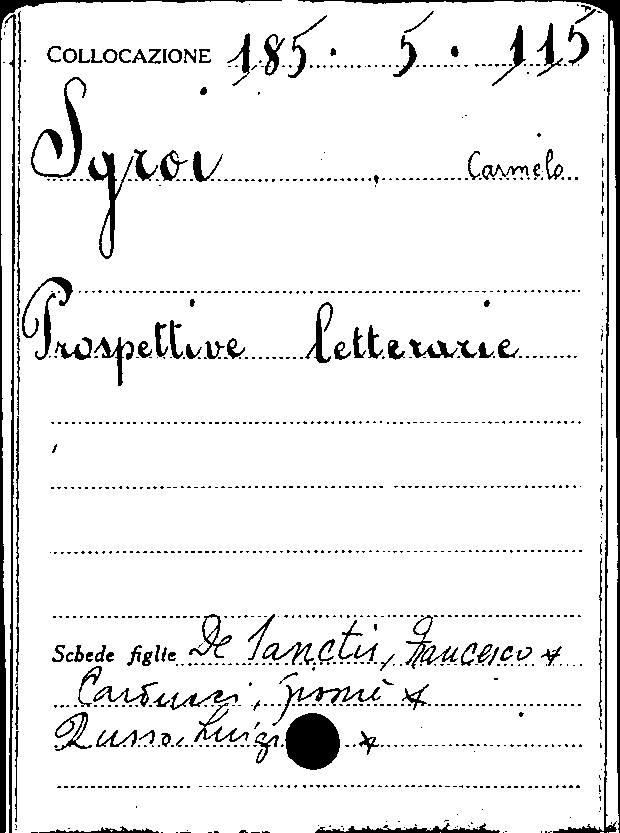 COLLOCAZIONE 185. 5. 115
Sgroi, Carmelo
Prospettive letterarie
Schede figlie De Sanctis, Francesco *
Carducci, Giosuè *
Russo, Luigi *